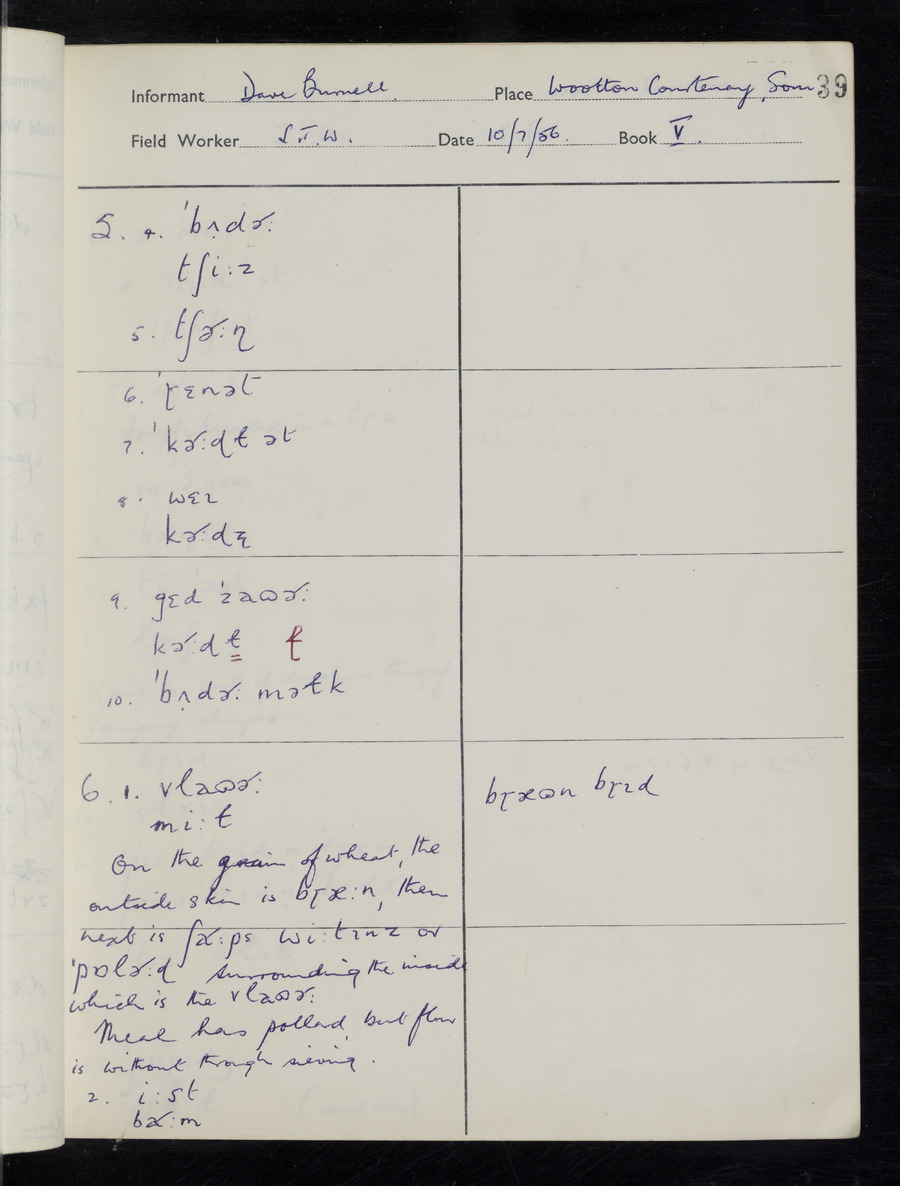 Informant Dave Burnell. Place Wootton Courtenay, Som 39
Field Worker S.F.W. Date 10/7/56. Book V.
5. 4. ˈbʌdɚ:
tʃi:z
5. tʃɚ:ɳ
6. ˈɽɛnət
7. ˈkɚ:dɫ ət
8. wɛɪ
kɚ:dʐ
9. gɛd ˈzaʊɚ:
kɚ:dɫ ɫ
10. ˈbʌdɚ: məɫk
6. 1. vlaʊɚ:
mi:ɫ
bɽæʊn bɽɪd
On the grain of wheat, the
outside skin is bɽæ:n, then
next is ʃɑ˞:ps wi:tɪnz or
ˈpɒlɚ:d surrounding the inside
which is the vlaʊɚ:
Meal has pollard, but flour
is without through sieving.
2. i:st
bɑ˞:m